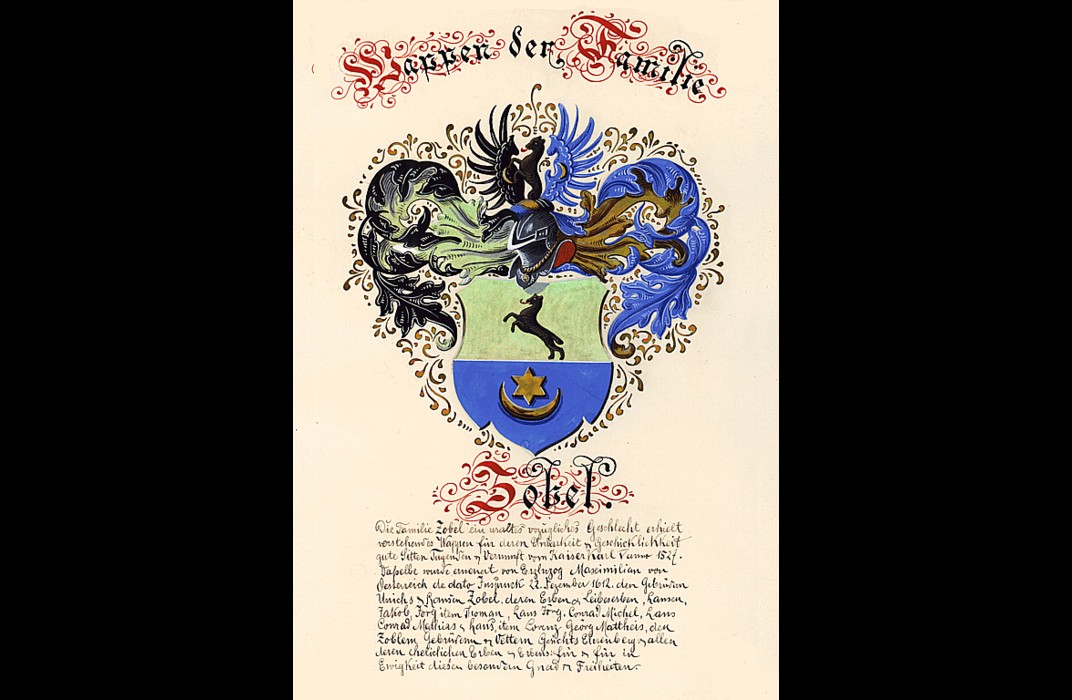 Wappen der Familie
Zobel.
Die Familie Zobel ein uraltes vorzügliches Geschlecht erhielt
vorstehendes Wappen für deren Ehrbarkeit & Geschicklichkeit
gute Sitten Tugenden & Vernunft vom Kaiser Karl V anno 154.
Daselbe wurde erneuert von Erzherzog Maximilian von
Oesterreich de dato Inspruck 22. Dezember 1612. den Gebrüdern
& Hansen Zobel, deren Erben & Leibeserben, Hansen,
Jakob, Jörg item Thoman, Hans Jörg, Conrad Michel, Hans
Conrad Mathias & Hans, item Lorenz Georg Mattheis, den
Zoblern Gebrüdern & Vettern Gerichts Ehrenberg & allen
deren ehelichen Erben & für & für in
Ewigkeit diesen besondern Gnad & Freiheiten.